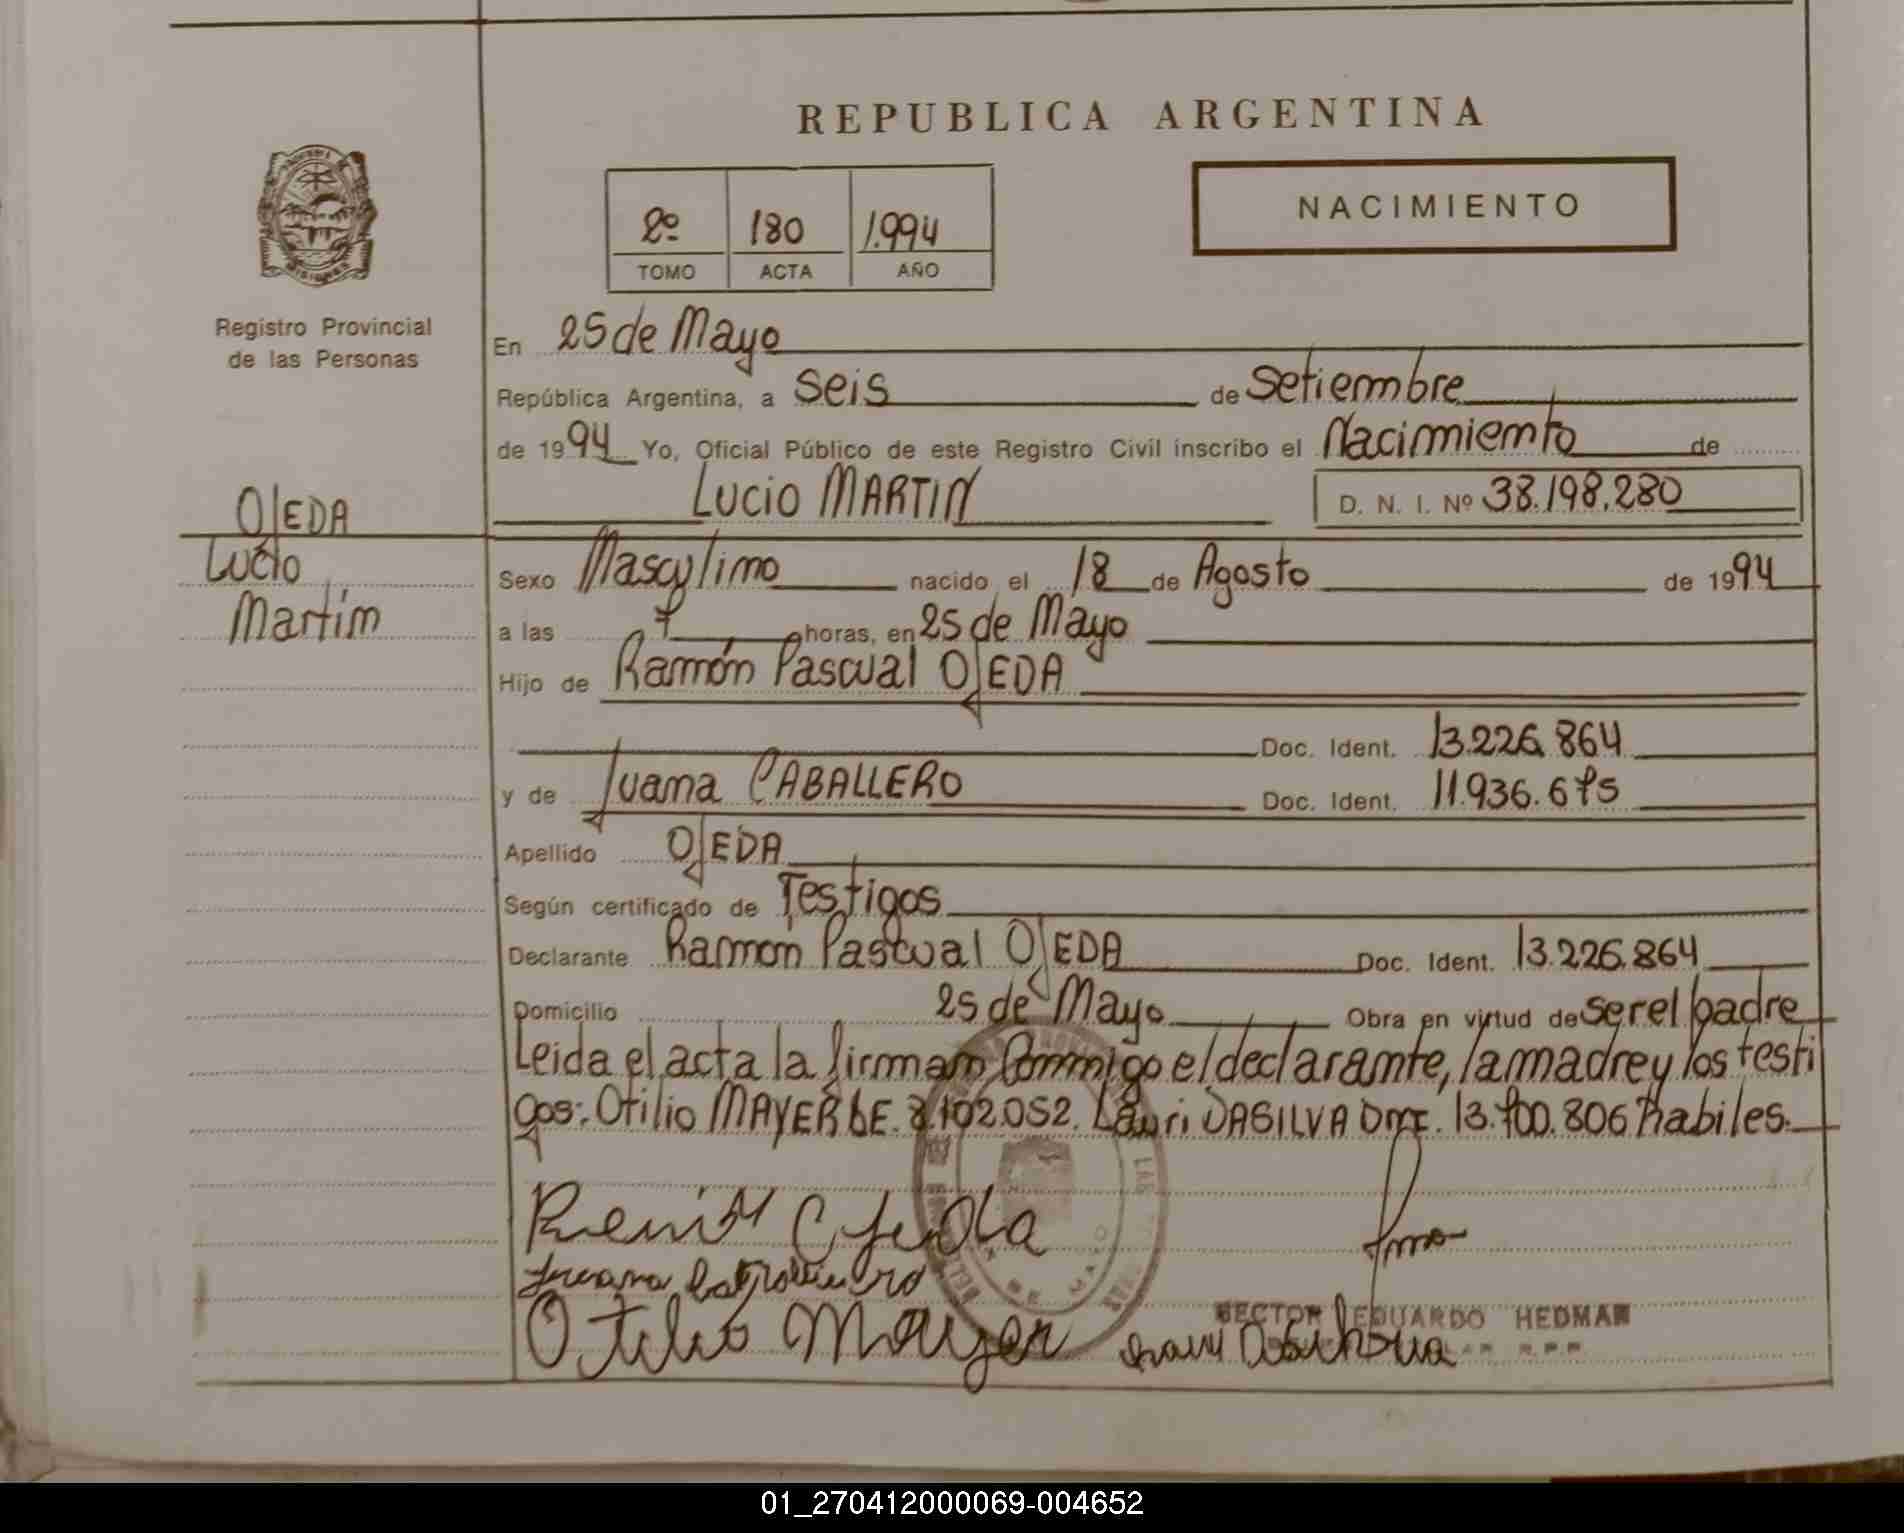 REPUBLICA ARGENTINA
2º 180 1.994
TOMO ACTA AÑO
NACIMIENTO
Registro Provincial
de las Personas
En 25 de Mayo
República Argentina, a seis de Setiembre
de 1994 Yo, Oficial Público de este Registro Civil inscribo el Nacimiento de
Lucio MARTIN D. N. I. Nº 38.198.280
OJEDA
Lucio
Martin
Sexo Masculino nacido el 18 de Agosto de 1994
a las 7 horas, en 25 de Mayo
Hijo de Ramón Pascual OJEDA
Doc. Ident. 13.226.864
y de Juana CABALLERO Doc. Ident. 11.936.675
Apellido OJEDA
Según certificado de Testigos
Declarante Ramón Pascual OJEDA Doc. Ident. 13.226.864
Domicilio 25 de Mayo Obra en virtud de ser el padre
Leida el acta la firman Conmigo el declarante, la madre y los testi
gos: Otilio MAYER LE. 8.102.052. Lauri DASILVA DNI. 13.700.806 habiles.
Otilio Mayer
HECTOR EDUARDO HEDMAN
01_270412000069-004652